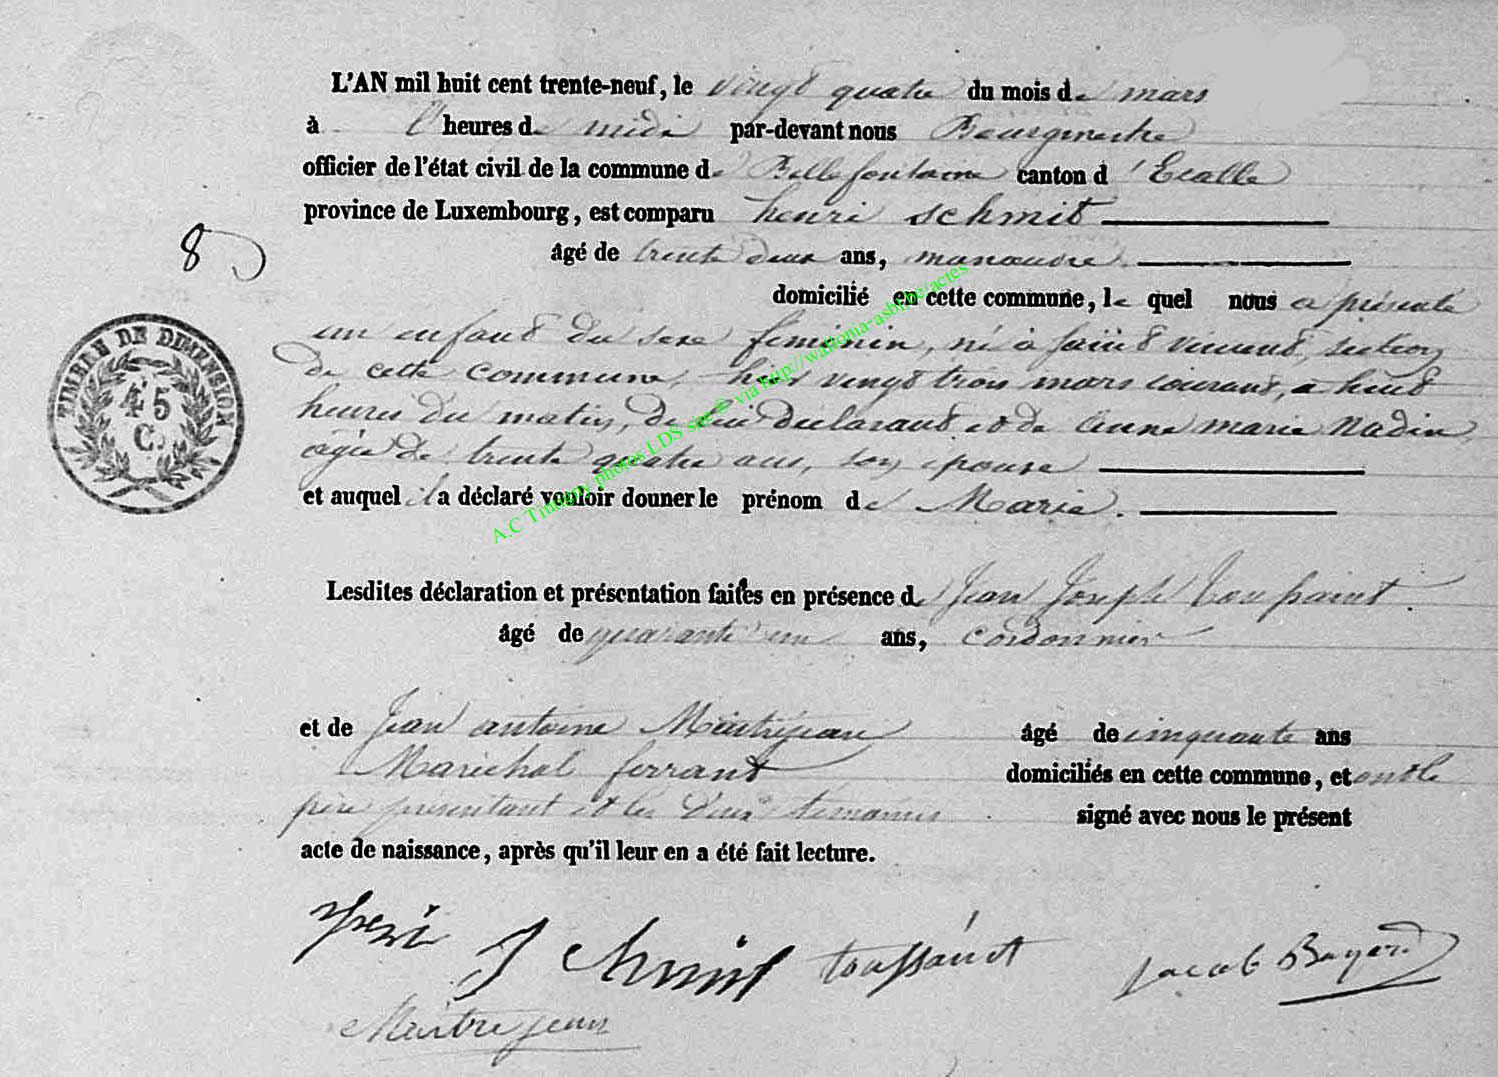 L'AN mil huit cent trente-neuf, le vingt quatre du mois de mars
à l'heures de midi par-devant nous Bourgmestre
officier de l'état civil de la commune de Bellefontaine canton d'Etalle
province de Luxembourg, est comparu henri schmit
8
âgé de trente deux ans, manœuvre
domicilié en cette commune, le quel nous a présenté
un enfant du sexe féminin, né à saint vincent, section
de cette commune, hier vingt trois mars courant, a huit
heures du matin, de lui declarant et de Anne marie Nadin,
agée de trente quatre ans, son épouse
et auquel il a déclaré vouloir donner le prénom de Marie.
TIMBRE DE DIMENSION
45
C.
A.C Tintigny photos LDS site© via http://wallonia-asbl.be/actes
Lesdites déclaration et présentation faites en présence de Jean Joseph Toussaint.
âgé de quarante un ans, cordonnier
et de Jean antoine Maitrejean âgé de cinquante ans
Maréchal ferrant domiciliés en cette commune, et ont le
père présentant et les deux témoins signé avec nous le présent
acte de naissance, après qu'il leur en a été fait lecture.
henri Schmit toussaint Jacob Bayard
Maitrejean